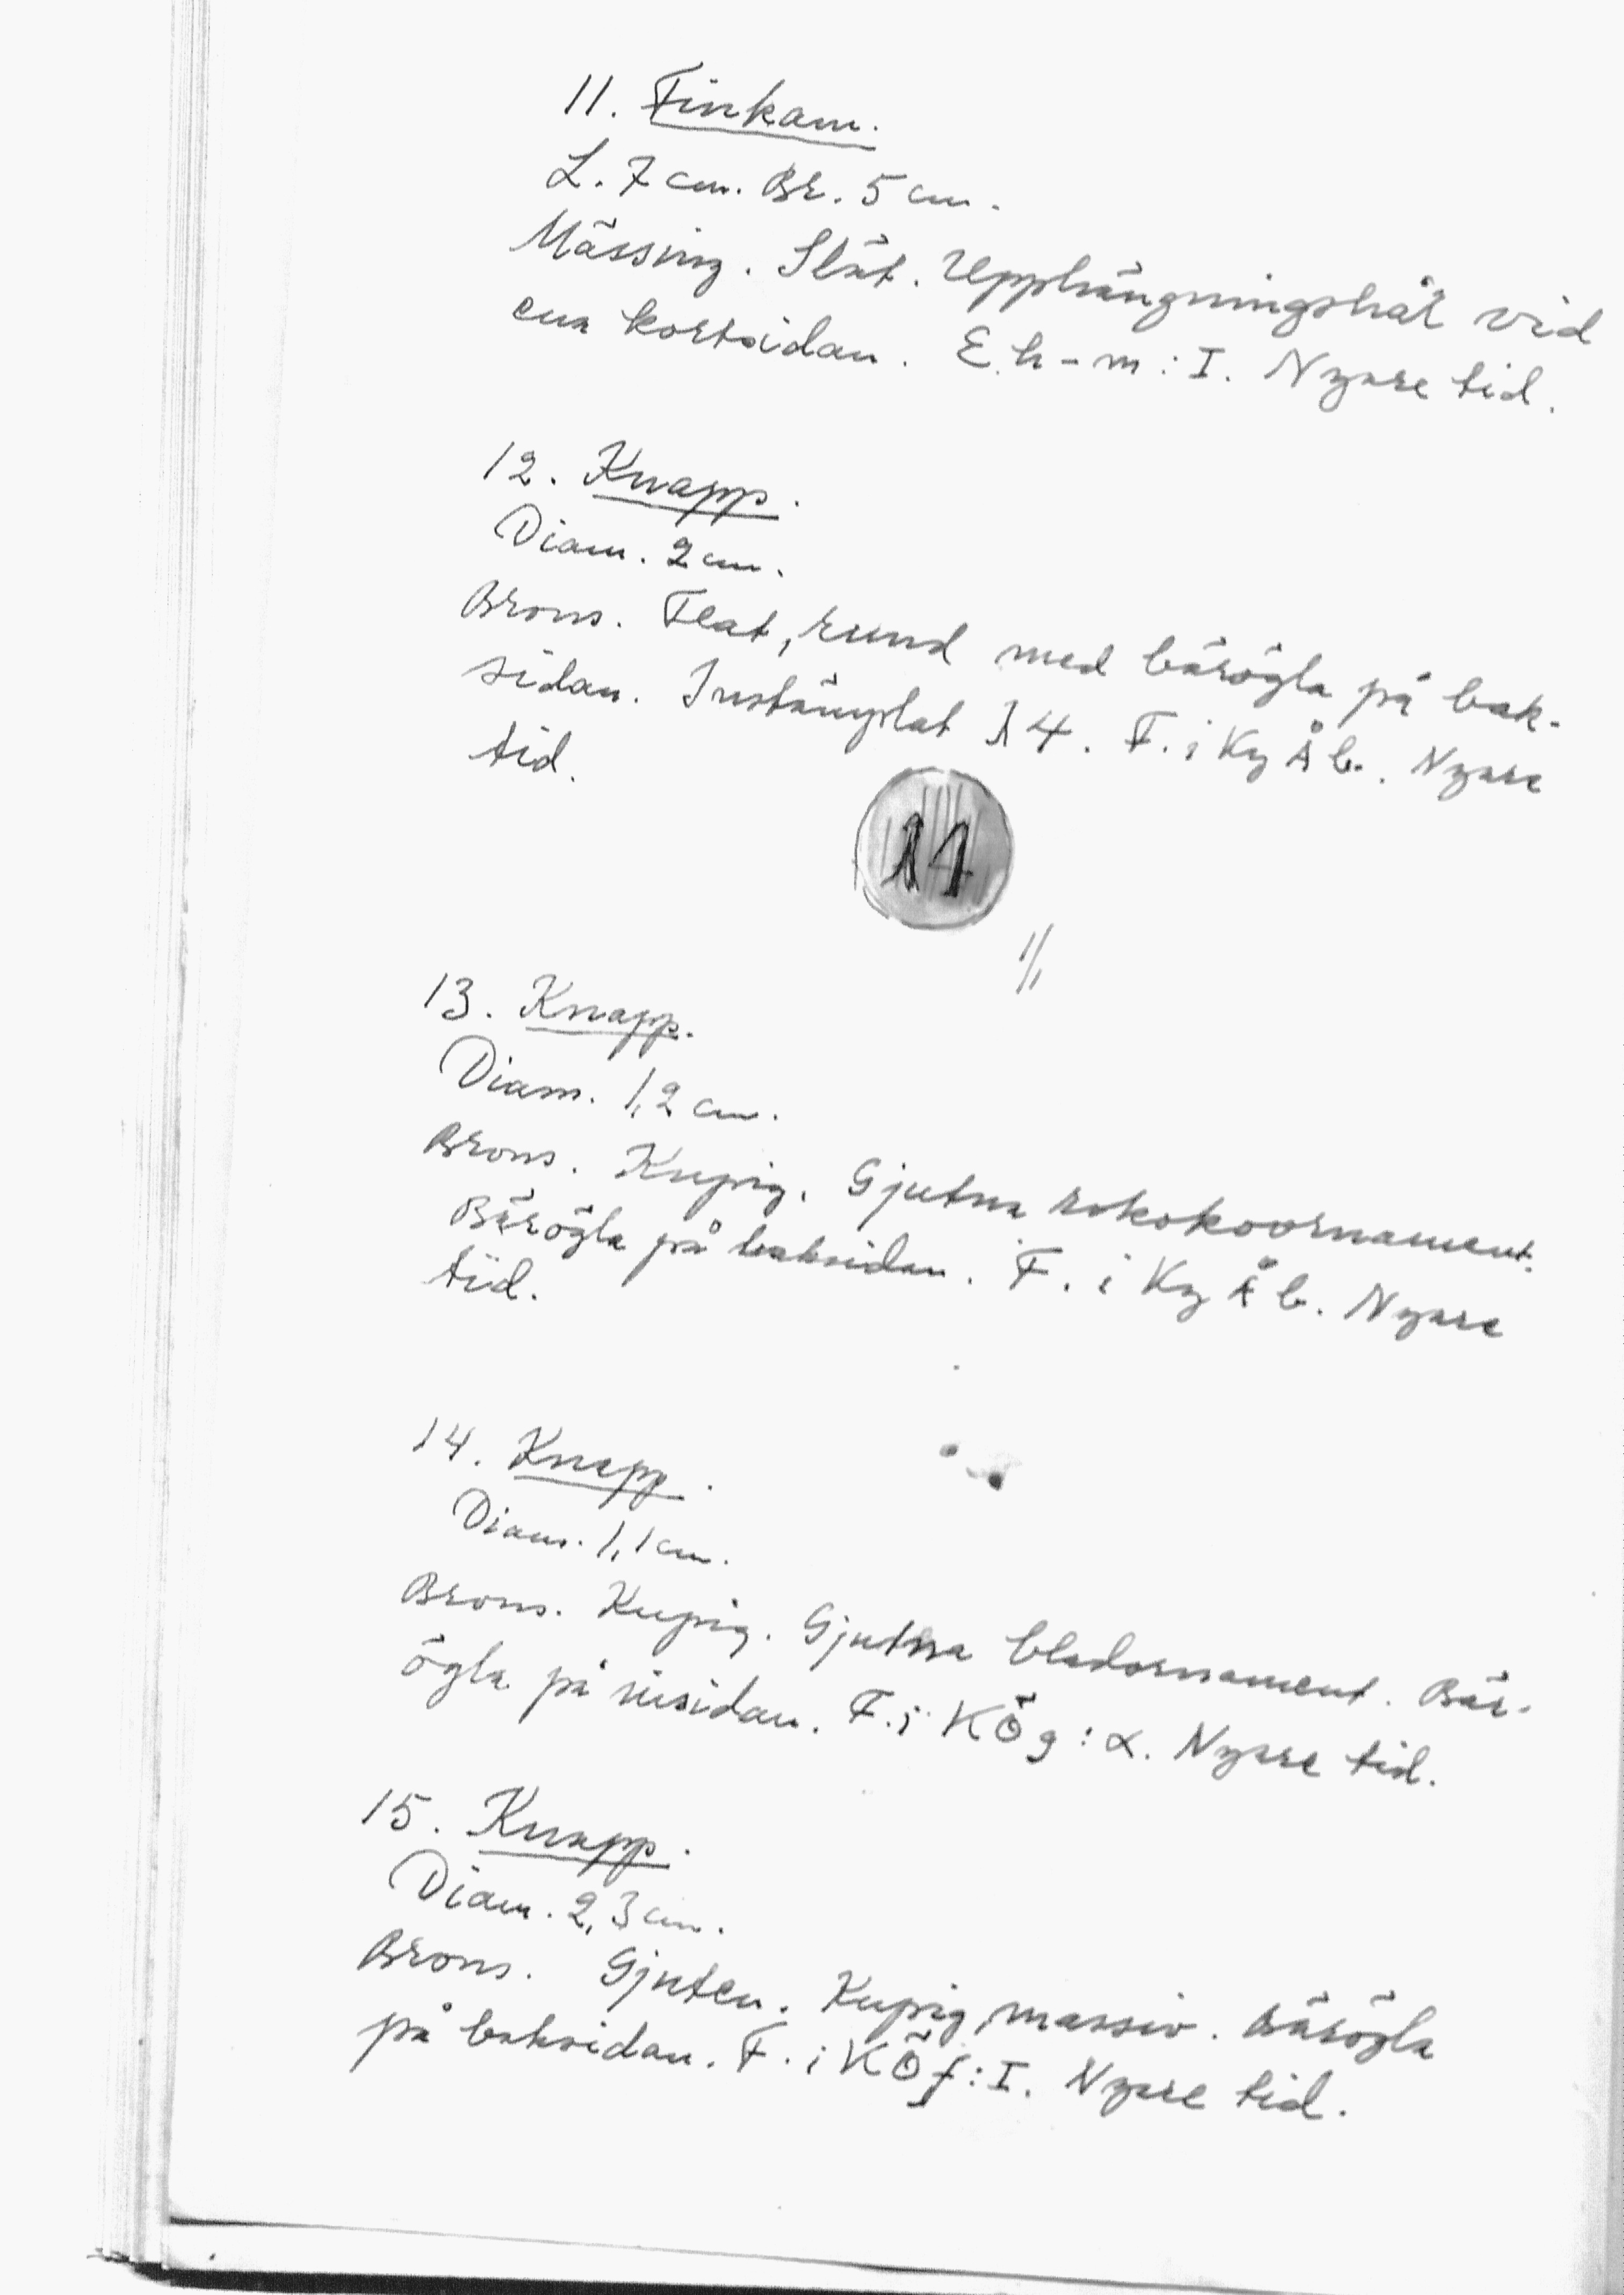 11. Finkam.
L. 7 cm. Br. 5 cm.
Mässing. Slät. Upphängningshål vid
ena kortsidan. E.h-m:I. Nyare tid.
12. Knapp.
Diam. 2 cm.
Brons. Flat, rund med bärögla på bak-
sidan. Instämplat 14. F. i Ky Åb. Nyare
tid.
14
1/1
13. Knapp.
Diam. 1,2 cm.
Brons. Kupig. Gjutna rokokoornament.
Bärögla på baksidan. F. i Ky Åb. Nyare
tid.
14. Knapp.
Diam. 1,1 cm.
Brons. Kupig. Gjutna bladornament. Bär-
ögla på insidan. F. i KÖg:α. Nyare tid.
15. Knapp.
Diam. 2,3 cm.
Brons. Gjuten. Kupig, massiv. Bärögla
på baksidan. F. i KÖf:I. Nyare tid.